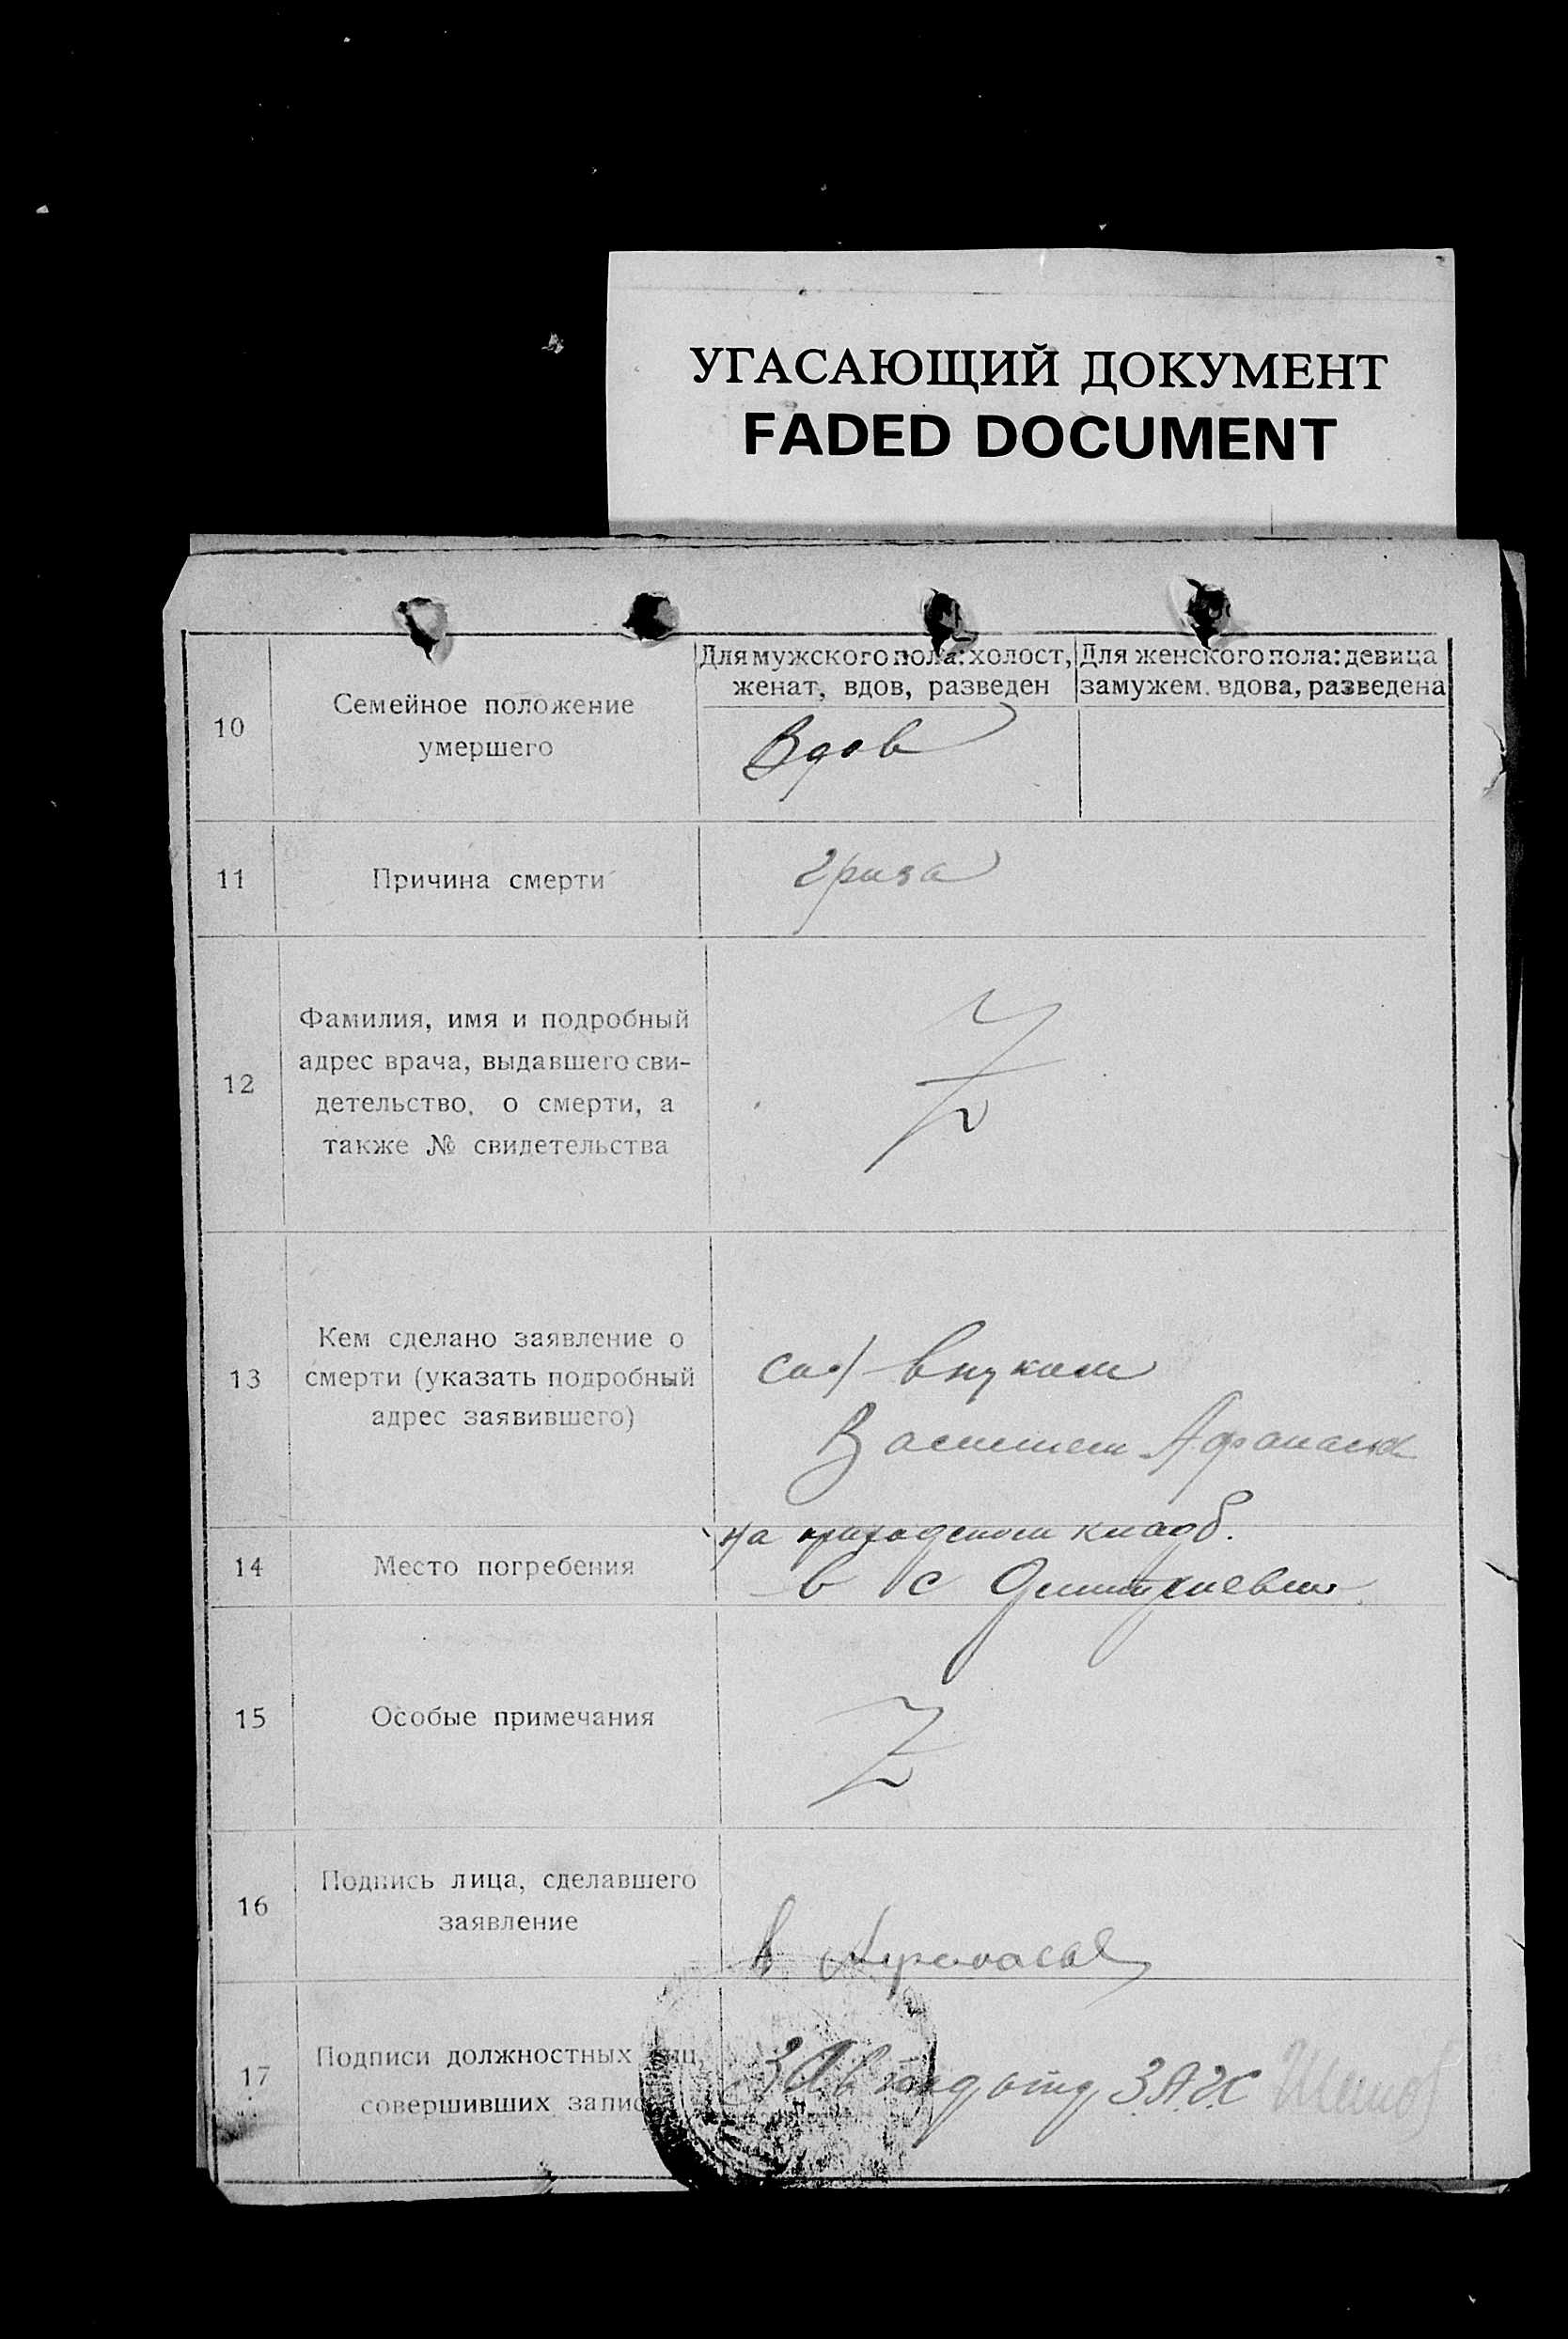 УГАСАЮЩИЙ ДОКУМЕНТ
FADED DOCUMENT
10
Семейное положение
умершего
Для мужского пола: холост,
женат, вдов, разведен
Для женского пола: девица
замужем. вдова, разведена
Вдов
11
Причина смерти
12
Фамилия, имя и подробный
адрес врача, выдавшего сви-
детельство, о смерти, а
также № свидетельства
13
Кем сделано заявление о
смерти (указать подробный
адрес заявившего)
внуком
14
Место погребения
на приходском кладб.
в с
15
Особые примечания
16
Подпись лица, сделавшего
заявление
в
17
Подписи должностных
совершивших
Зав отд ЗАГС